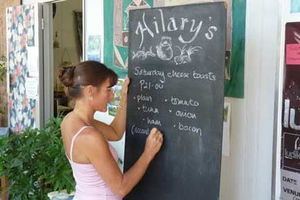 Hilary's
Saturday cheese toasts
• plain • tomato
• tuna • onion
• ham • Bacon
VENUE:
DATE: